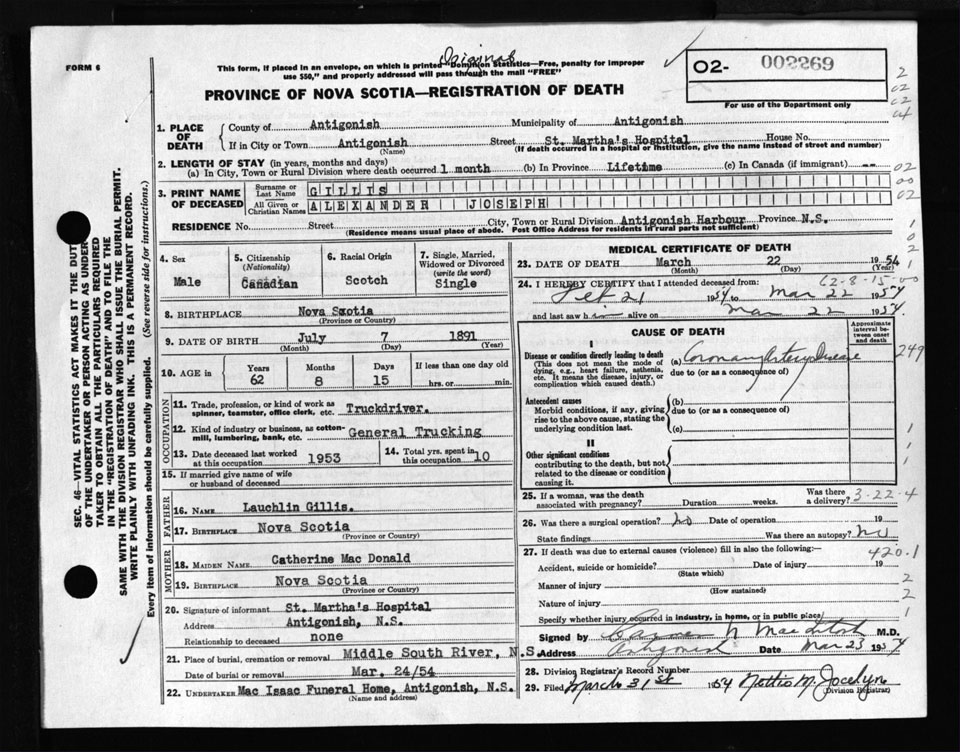 FORM 6
Original
This form, if placed in an envelope, on which is printed "Dominion Statistics—Free, penalty for improper
use $50," and properly addressed will pass through the mail "FREE"
PROVINCE OF NOVA SCOTIA—REGISTRATION OF DEATH
02- 002269
For use of the Department only
1. PLACE OF DEATH County of Antigonish Municipality of Antigonish
If in City or Town Antigonish Street St. Martha's Hospital House No.
(Name) (If death occurred in a hospital or institution, give the name instead of street and number)
2. LENGTH OF STAY (in years, months and days)
(a) In City, Town or Rural Division where death occurred 1 month (b) In Province Lifetime (c) In Canada (if immigrant) --
3. PRINT NAME OF DECEASED Surname or Last Name GILLIS
All Given or Christian Names ALEXANDER JOSEPH
RESIDENCE No. Street City, Town or Rural Division Antigonish Harbour Province N.S.
(Residence means usual place of abode. Post Office Address for residents in rural parts not sufficient)
4. Sex Male
5. Citizenship (Nationality) Canadian
6. Racial Origin Scotch
7. Single, Married, Widowed or Divorced (write the word) Single
8. BIRTHPLACE Nova Scotia
(Province or Country)
9. DATE OF BIRTH July 7 1891
(Month) (Day) (Year)
10. AGE in Years 62 Months 8 Days 15 If less than one day old hrs. or min.
OCCUPATION
11. Trade, profession, or kind of work as spinner, teamster, office clerk, etc. Truckdriver.
12. Kind of industry or business, as cotton-mill, lumbering, bank, etc. General Trucking
13. Date deceased last worked at this occupation 1953
14. Total yrs. spent in this occupation 10
15. If married give name of wife or husband of deceased
FATHER
16. NAME Lauchlin Gillis.
17. BIRTHPLACE Nova Scotia
(Province or Country)
MOTHER
18. MAIDEN NAME Catherine Mac Donald
19. BIRTHPLACE Nova Scotia
(Province or Country)
20. Signature of informant St. Martha's Hospital
Address Antigonish, N.S.
Relationship to deceased none
21. Place of burial, cremation or removal Middle South River, N.S.
Date of burial or removal Mar. 24/54
22. UNDERTAKER Mac Isaac Funeral Home, Antigonish, N.S.
(Name and address)
MEDICAL CERTIFICATE OF DEATH
23. DATE OF DEATH March 22 1954
(Month) (Day) (Year)
62-8-15-00
24. I HEREBY CERTIFY that I attended deceased from:
Feb 21 1954 to Mar 22 1954
and last saw him alive on Mar 22 1954
CAUSE OF DEATH
Approximate interval between onset and death
I
Disease or condition directly leading to death (a) Coronary Artery Disease
(This does not mean the mode of dying, e.g., heart failure, asthenia, etc. It means the disease, injury, or complication which caused death.)
due to (or as a consequence of)
Antecedent causes (b)
Morbid conditions, if any, giving rise to the above cause, stating the underlying condition last.
due to (or as a consequence of)
(c)
II
Other significant conditions
contributing to the death, but not related to the disease or condition causing it.
25. If a woman, was the death associated with pregnancy? Duration weeks. Was there a delivery?
3-22-4
26. Was there a surgical operation? No Date of operation 19
State findings Was there an autopsy? No
27. If death was due to external causes (violence) fill in also the following:
420.1
Accident, suicide or homicide? Date of injury 19
(State which)
Manner of injury
(How sustained)
Nature of injury
Specify whether injury occurred in industry, in home, or in public place
Signed by MacIntosh M.D.
Address Antigonish Date Mar 23 1954
28. Division Registrar's Record Number
29. Filed March 31st 1954 Nettie M. Jocelyn
(Division Registrar)
SEC. 46—VITAL STATISTICS ACT MAKES IT THE DUTY
OF THE UNDERTAKER OR PERSON ACTING AS UNDER-
TAKER TO OBTAIN ALL THE PARTICULARS REQUIRED
IN THE "REGISTRATION OF DEATH" AND TO FILE THE
SAME WITH THE DIVISION REGISTRAR WHO SHALL ISSUE THE BURIAL PERMIT.
WRITE PLAINLY WITH UNFADING INK. THIS IS A PERMANENT RECORD.
Every item of information should be carefully supplied. (See reverse side for instructions.)
2
02
02
04
02
00
02
1
0
2
1
249
1
1
1
2
2
1